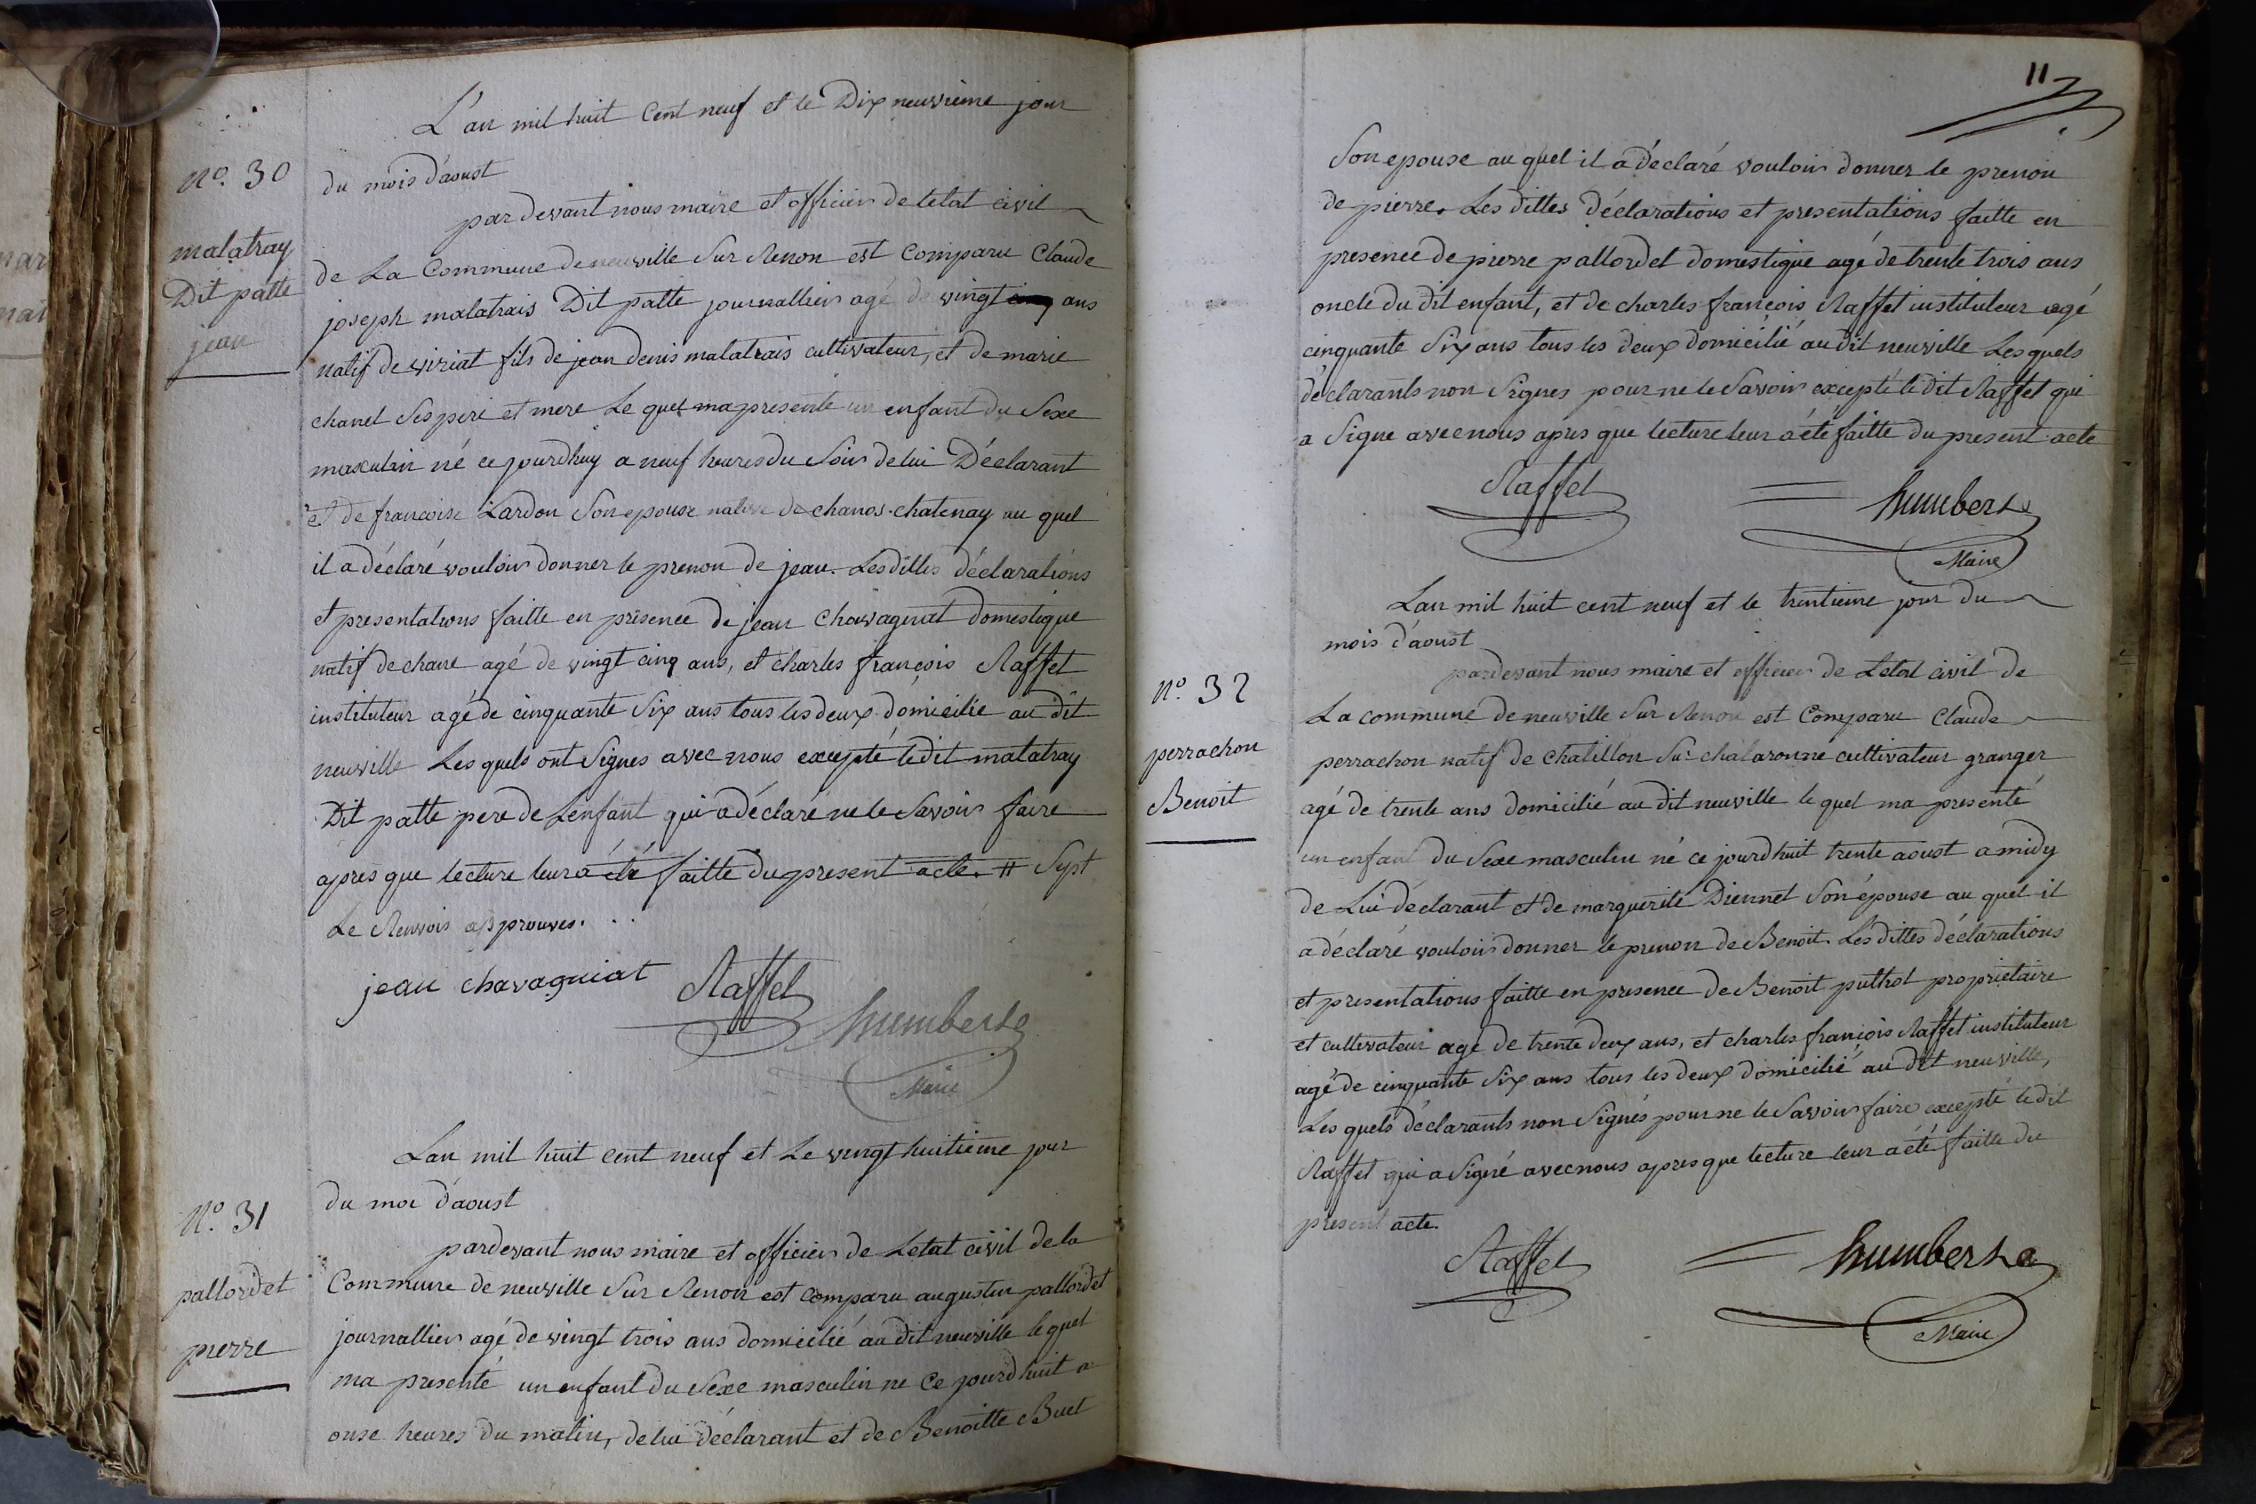 L'an mil huit Cent neuf et le Dix neuvieme jour
du mois d'aoust
No. 30
par devant nous maire et officier de letat civil
malatray
Dit patte
jean
de La Commune de neuville Sur Renon est Comparu Claude
joseph malatrais Dit patte journallier agé de vingt ans
natif de viriat fils de jean denis malatrais cultivateur, et de marie
chanel Ses pere et mere Le quel ma presenté un enfant du Sexe
masculin né ce jourdhuy a neuf heures du Soir de lui Déclarant
et de francoise Lardon Son epouse native de chanos-chatenay au quel
il a déclaré vouloir donner le prenon de jean. Les dittes déclarations
et presentations faitte en présence de jean Chavagniat domestique
natif de chane agé de vingt cinq ans, et charles françois Raffet
instituteur agé de cinquante Six ans tous les deux domicilié au dit
neuville Les quels ont Signes avec nous excepté ledit malatray
Dit patte pere de Lenfant qui a déclaré ne le Savoir faire
après que lecture leur a été faitte du present acte. # Sept
Le Renvois approuves.
jean chavagniat Raffet humbert
Maire
Lan mil huit cent neuf et Le vingt huitieme jour
du moi d'aoust
No. 31
pallordet
pierre
pardevant nous maire et officier de Letat civil de la
Commune de neuville Sur Renon est comparu augustin pallordet
journallier agé de vingt trois ans domicilié au dit neuville le quel
ma presenté un enfant du Sexe masculin ne Ce jourdhuit a
onse heures du matin, de lui déclarant et de Benoitte Buet
11
Son epouse au quel il a déclaré vouloir donner le prenon
de pierre. Les dittes Déclarations et presentations faitte en
presence de pierre pallordet domestique agé de trente trois ans
oncle du dit enfant, et de charles françois Raffet instituteur agé
cinquante Six ans tous les deux domicilié au dit neuville Les quels
déclarants non Signes pour ne le Savoir excepté le dit Raffet qui
a Signe avec nous apres que lecture leur a été faitte du present acte
Raffet humbert
Maire
Lan mil huit cent neuf et le trentieme jour du
mois d'aoust
No. 32
perrachon
Benoit
pardevant nous maire et officier de Letat civil de
La commune de neuville Sur Renon est Comparu Claude
perrachon natif de Chatillon Sur chalaronne cultivateur granger
agé de trente ans domicilié au dit neuville le quel ma presenté
un enfant du Sexe masculin né ce jourdhuit trente aoust a midy
de Lui déclarant et de marguerite Diennet Son épouse au quel il
a déclaré vouloir donner le prenon de Benoit. Les dittes déclarations
et presentations faitte en presence de Benoit puthot proprietaire
et cultivateur agé de trente deux ans, et charles françois Raffet instituteur
agé de cinquante Six ans tous les deux domicilié au dit neuville,
Les quels déclarants non Signés pour ne le Savoir faire excepté ledit
Raffet qui a Signé avec nous apres que lecture leur a été faitte du
present acte.
Raffet humbert
Maire